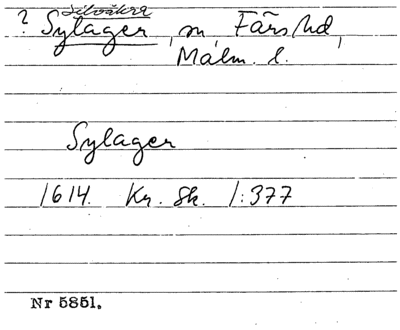 Silvåkra
? Sylager, sn, Färs hd,
Malm. l.
Sylager
1614. Kr. Sk. 1:377
Nr 5851.